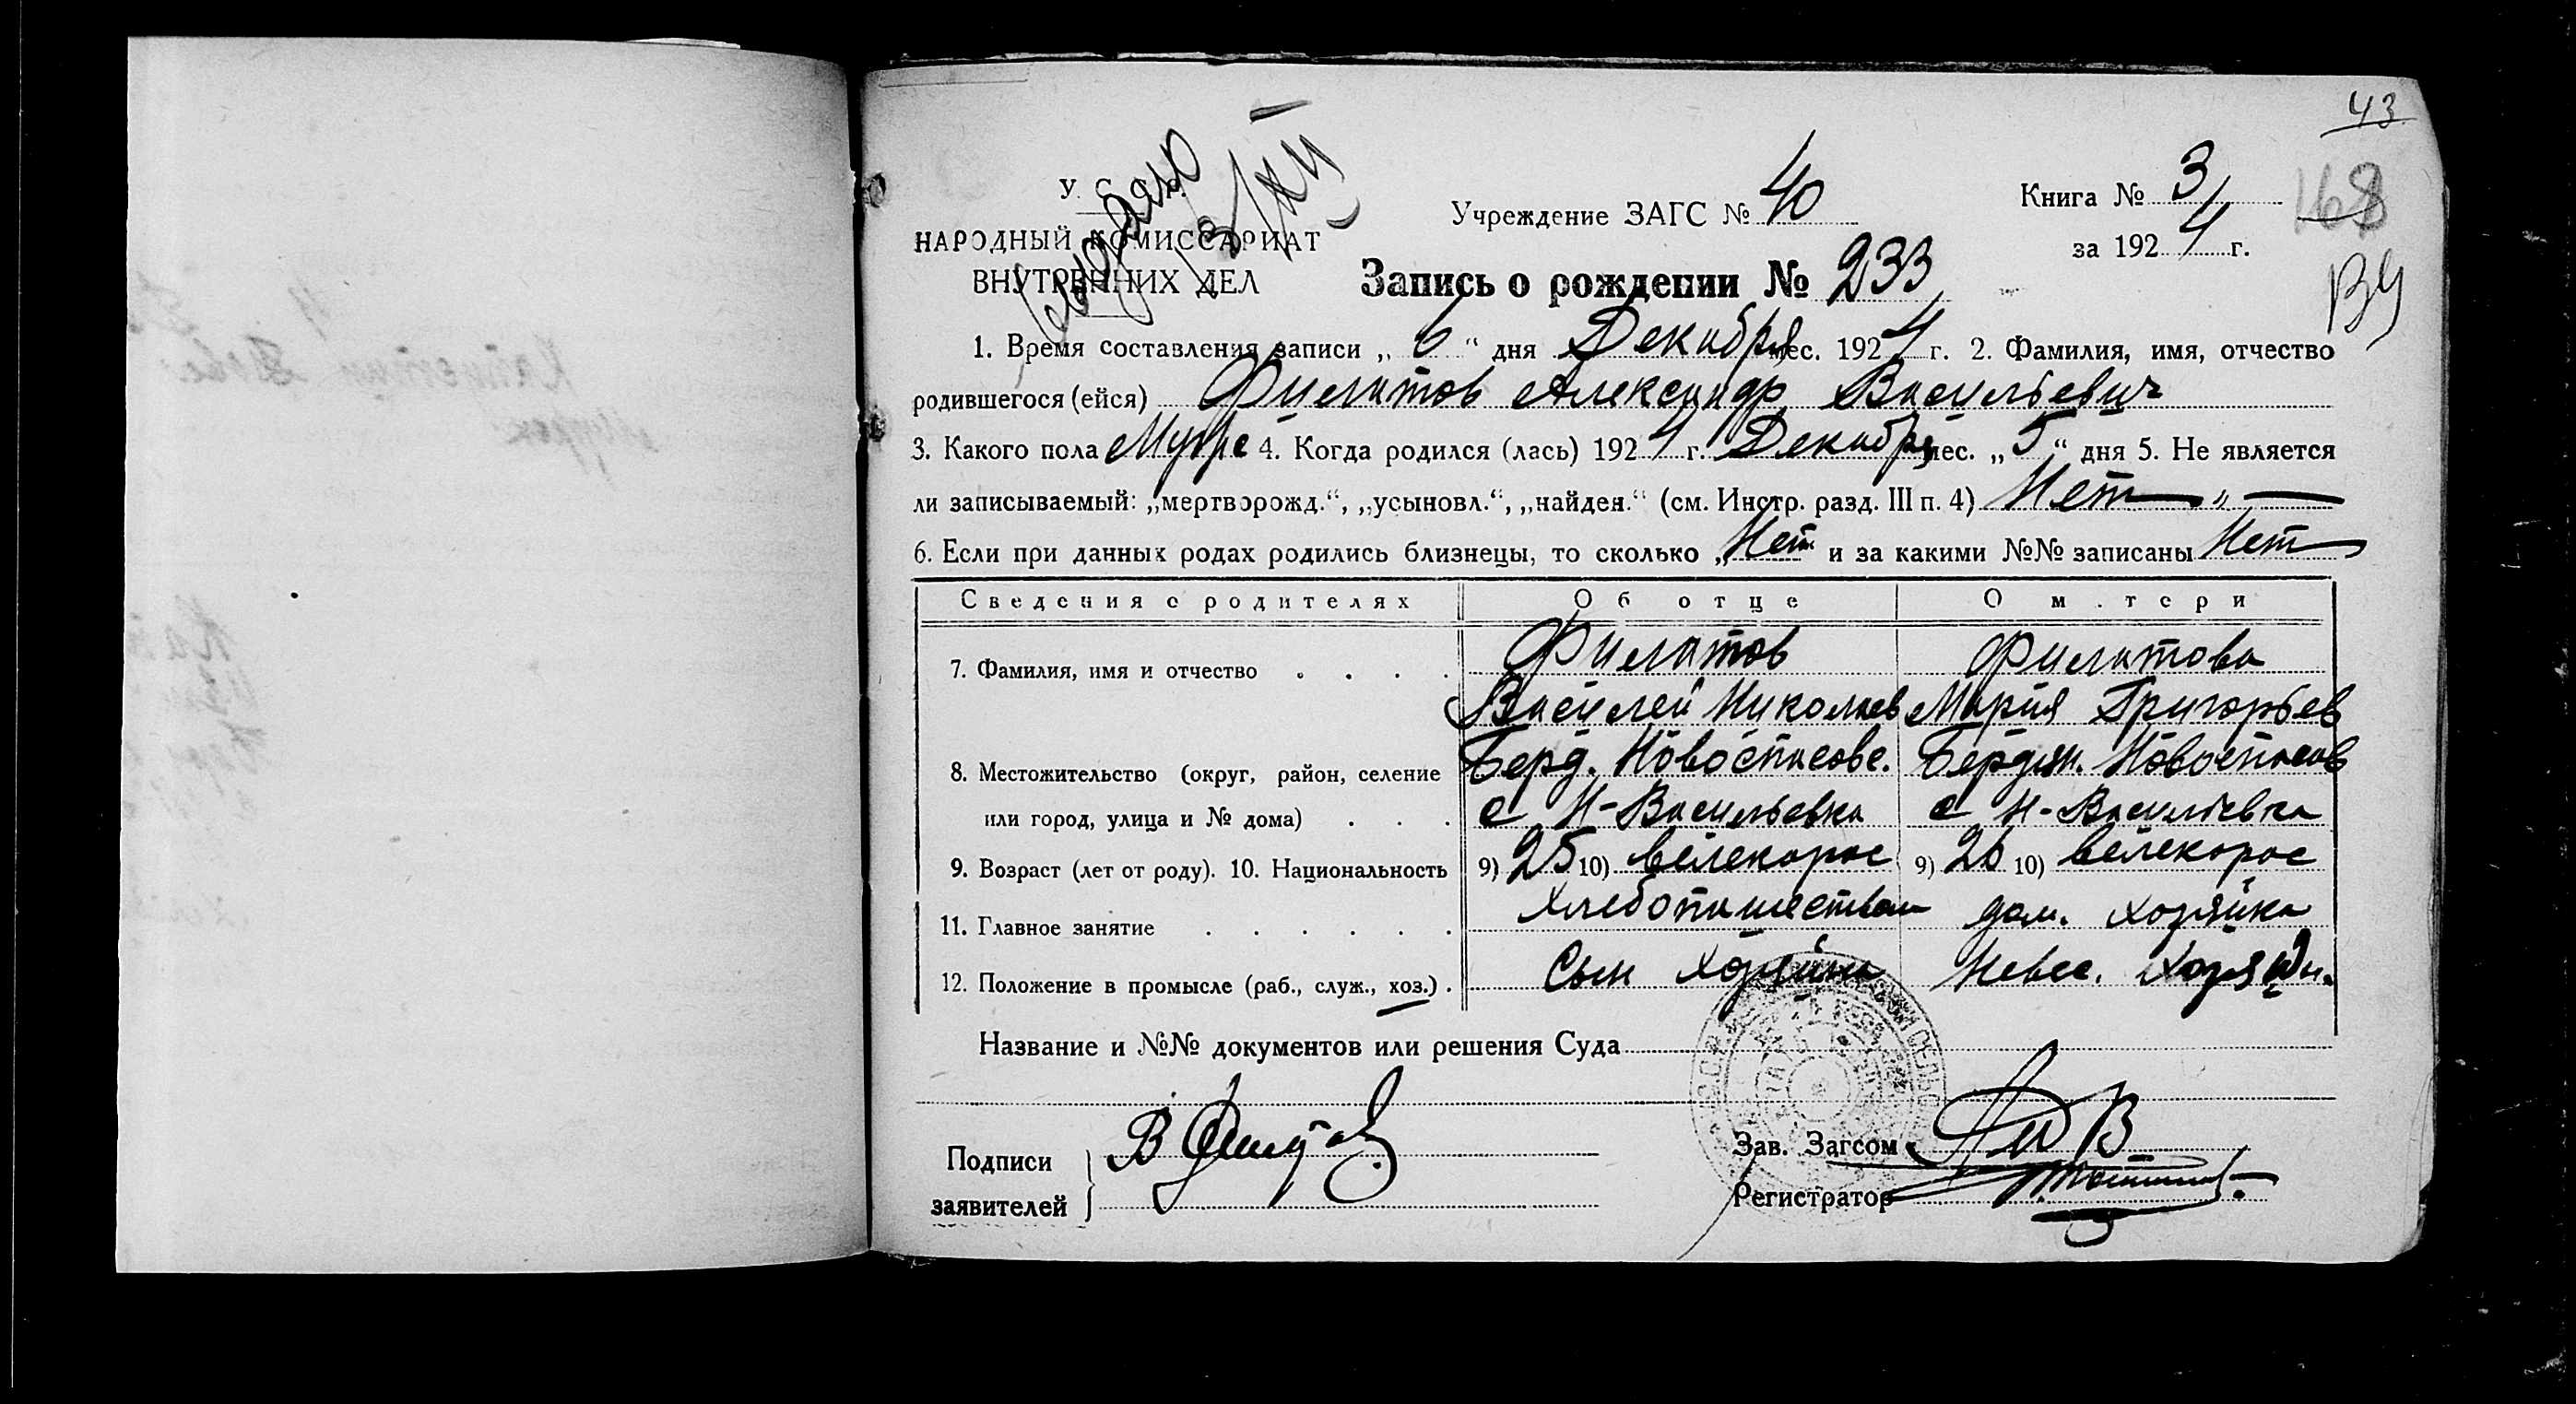 43
У. С. С. Р.
НАРОДНЫЙ КОМИССАРИАТ
ВНУТРЕННИХ ДЕЛ
Учреждение ЗАГС № 40
Книга № 3
за 1924 г.
168
Запись о рождении № 233
1. Время составления записи „ 6 “ дня Декабря мес. 1924 г. 2. Фамилия, имя, отчество
родившегося (ейся) Филатов Александр Васильевич
3. Какого пола Муж 4. Когда родился (лась) 1924 г. Декабря мес. „ 5 “ дня 5. Не является
ли записываемый: „мертворожд.“, „усыновл.“, „найден.“ (см. Инстр. разд. III п. 4) Нет — „ —
6. Если при данных родах родились близнецы, то сколько „ Нет и за какими №№ записаны Нет
Сведения о родителях Об отце О м.тери
7. Фамилия, имя и отчество . . . . Филатов Филатова
Василей Николаев Мария Григорьев
8. Местожительство (округ, район, селение Берд. Новоспасовс. Бердян. Новоспасов
или город, улица и № дома) . . . с Н-Васильевка с Н-Васильевка
9. Возраст (лет от роду). 10. Национальность 9) 25 10) велекорос 9) 26 10) велекорос
11. Главное занятие . . . . . . Хлебопашеством дом. хозяйка
12. Положение в промысле (раб., служ., хоз.) . Сын хозяина Невес. Хозяин.
Название и №№ документов или решения Суда
Подписи
заявителей
В Филатов
Зав. Загсом
Регистратор